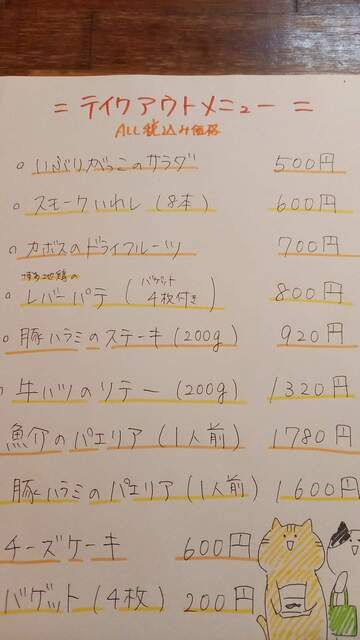 = テイクアウトメニュー =
ALL税込み価格
いぶりがっこのサラダ 500円
スモークいわし (8本) 600円
カボスのドライフルーツ 700円
博多地鶏の
レバーパテ (バゲット4枚付き) 800円
豚ハラミのステーキ (200g) 920円
牛ハツのソテー (200g) 1320円
魚介のパエリア (1人前) 1780円
豚ハラミのパエリア (1人前) 1600円
チーズケーキ 600円
バゲット (4枚) 200円